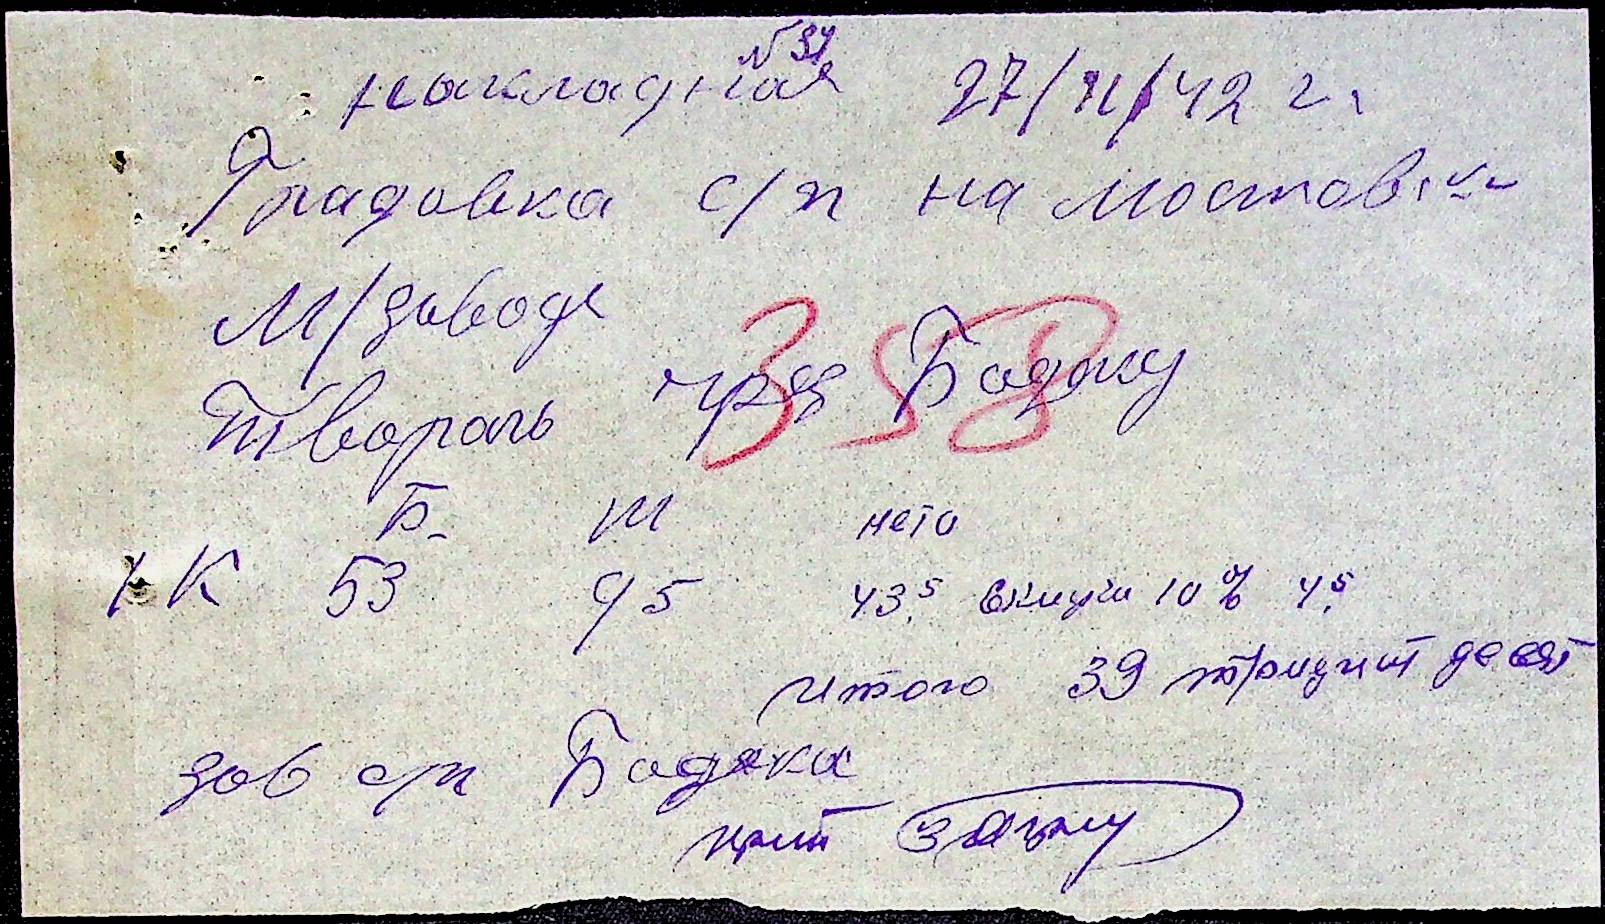 № 37
накладная 27/XI/42 г.
Градовка с/п на мостовски
м/завода
Творогь чрез Бадяку
358
Б- Т нето
1 К 53 95 43,5 скидки 10% 4,5
итого 39 тридцит десят
зав с/п Бадяка